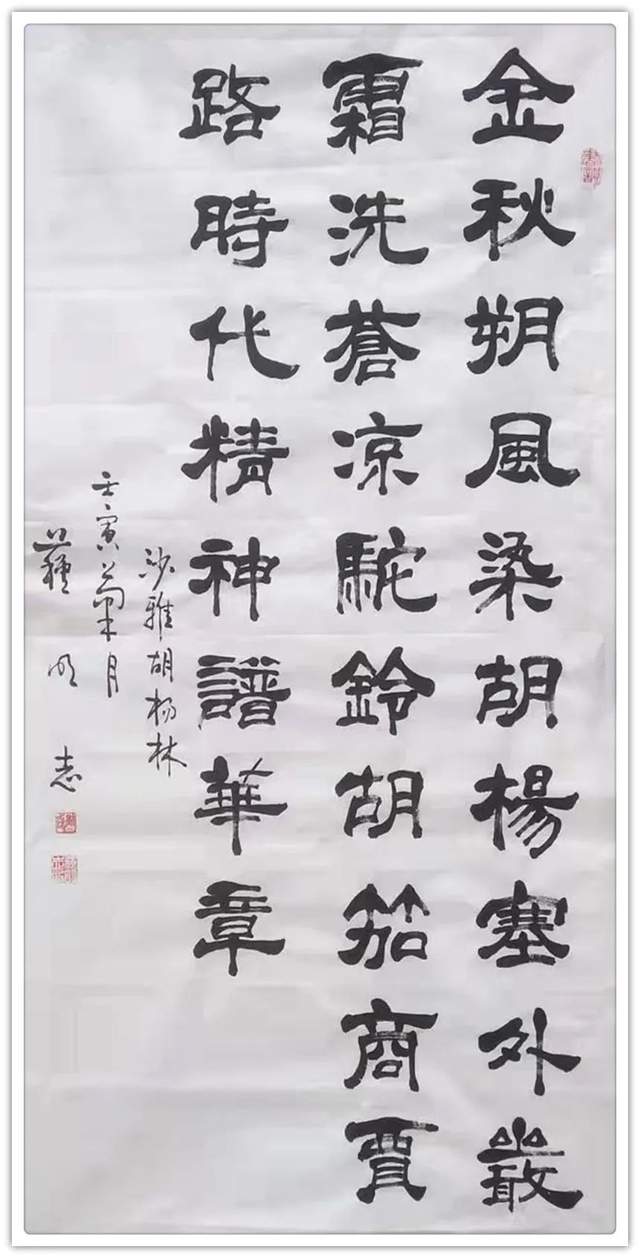 金秋朔風染胡楊塞外嚴
霜洗蒼凉駝鈴胡笳商賈
路時代精神譜華章
沙雅胡杨林
壬寅菊月
明志